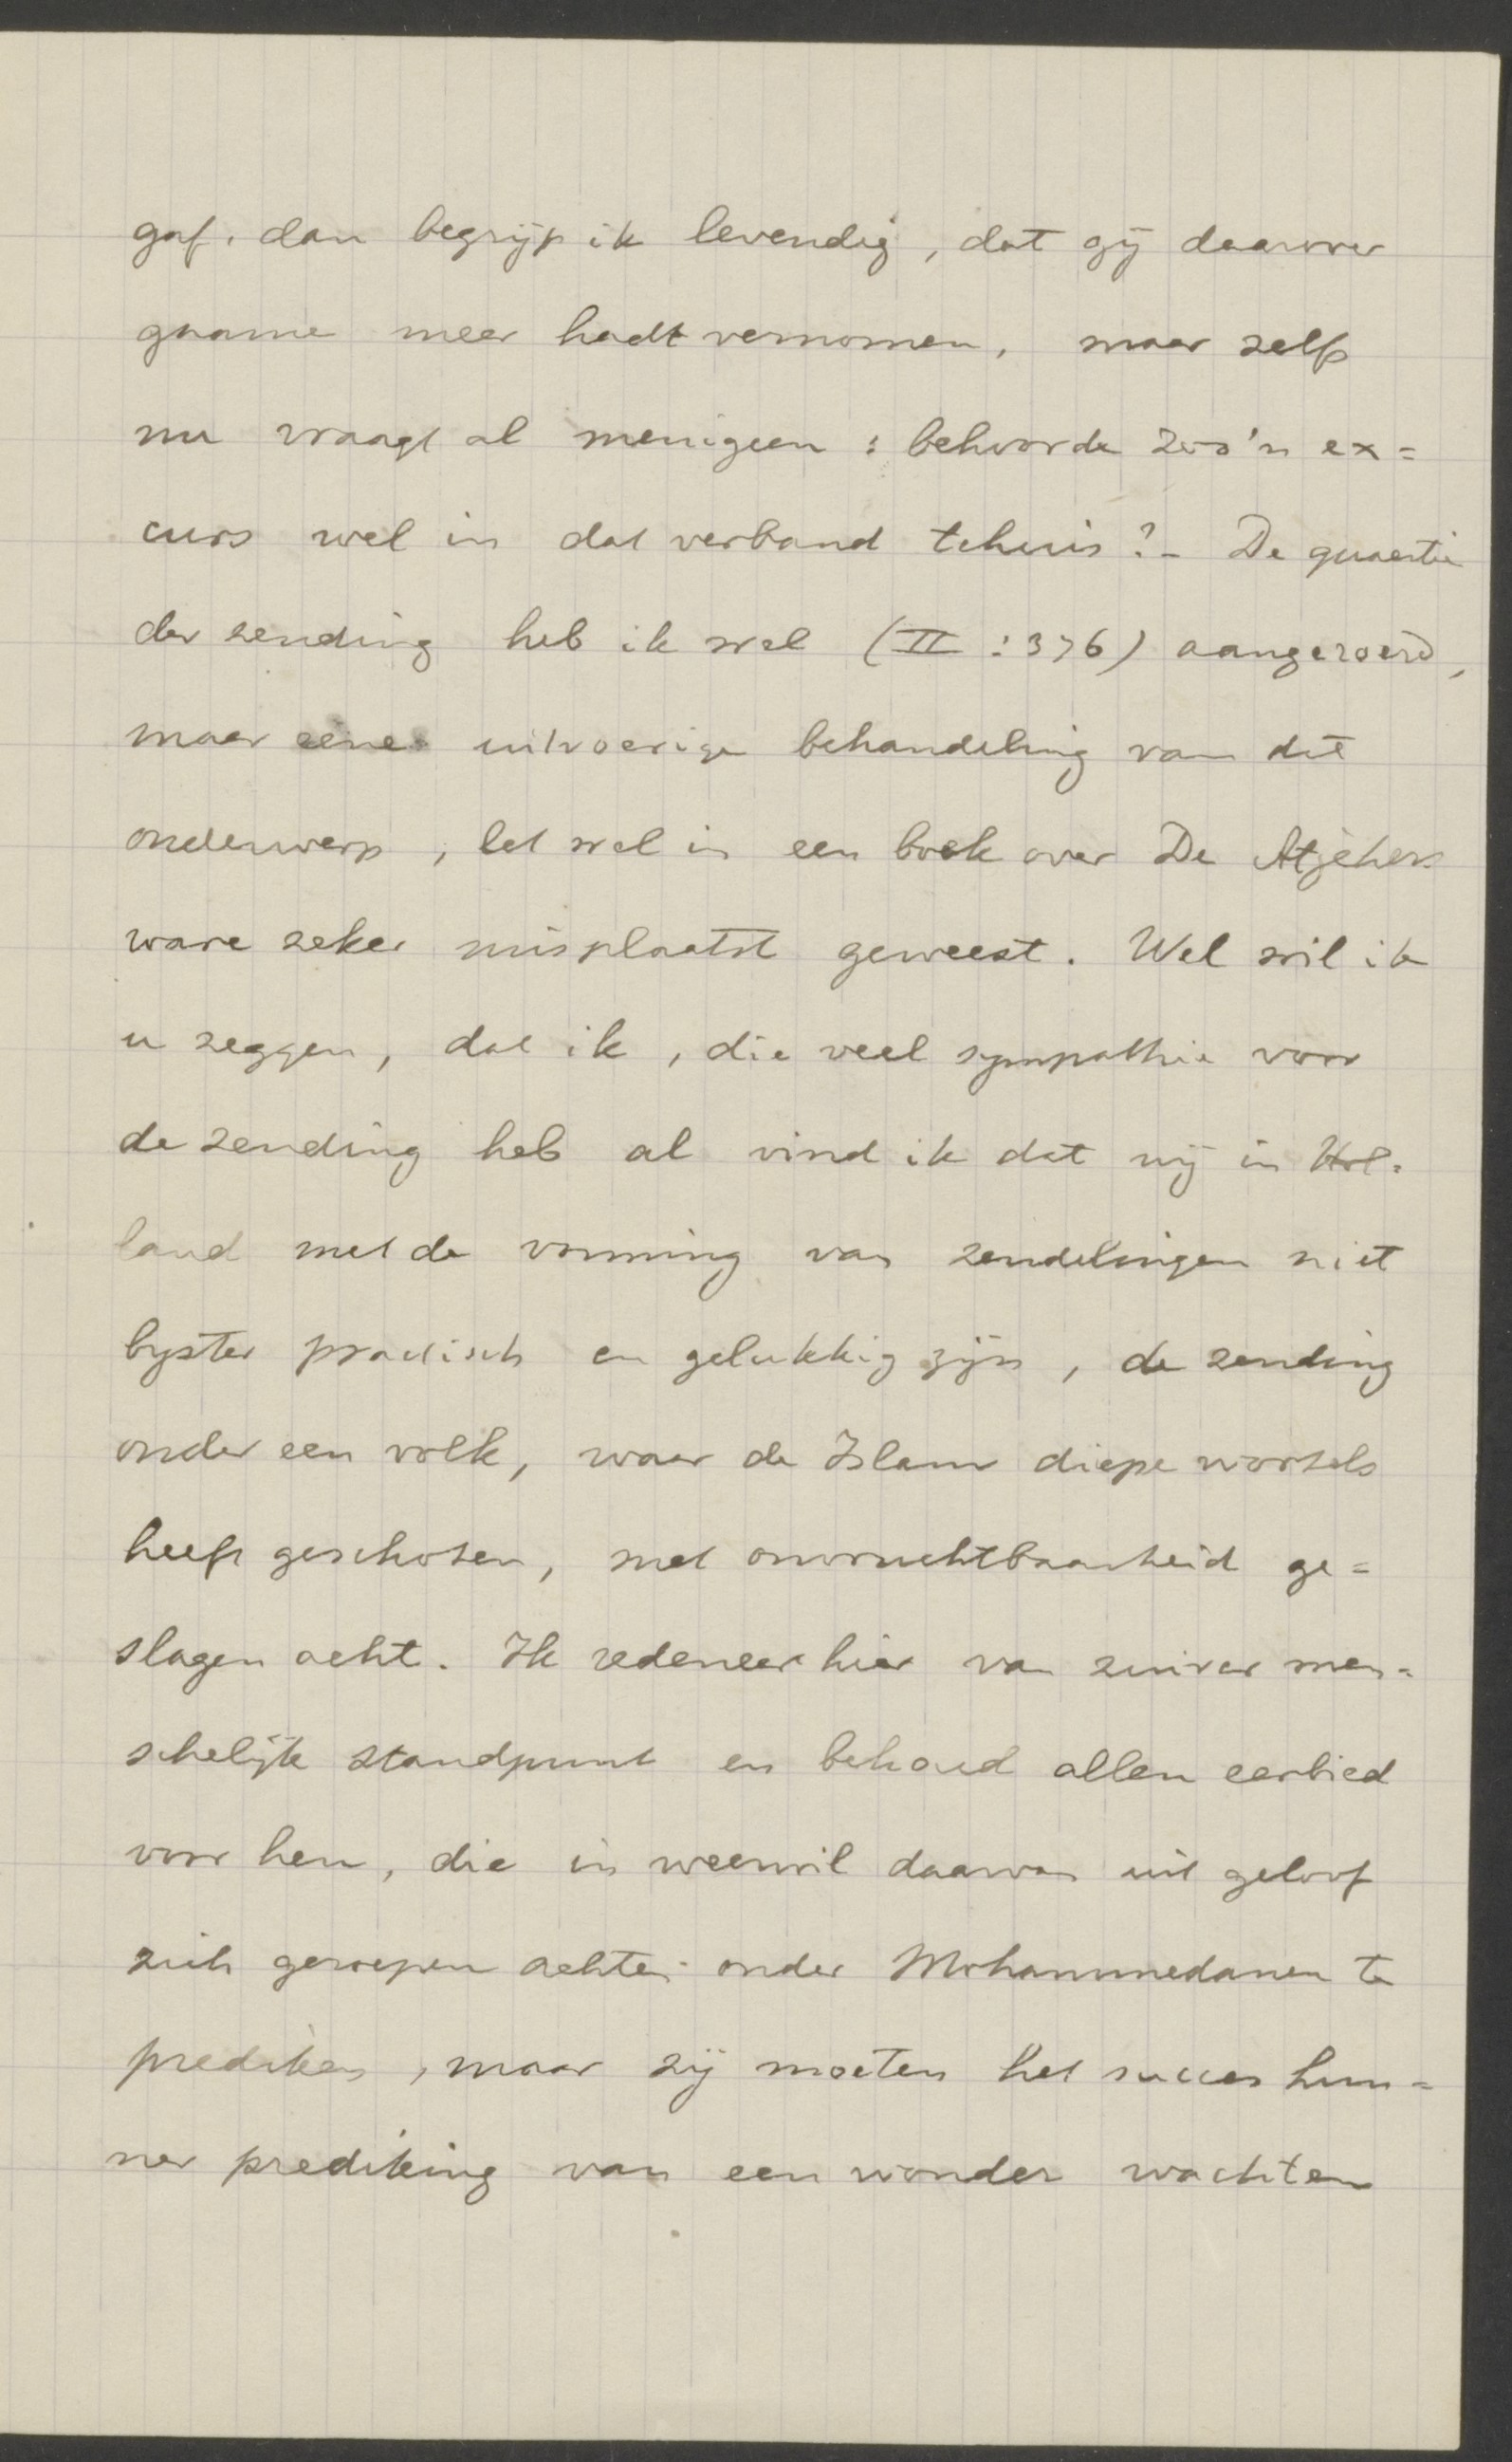 gaf, dan begrijp ik levendig, dat gij daarover
gaarne meer hadt vernomen, maar zelfs
nu vraagt al menigeen: behoorde zoo'n ex=
curs wel in dat verband tehuis? - De quaestie
der zending heb ik wel (II:376) aangeroerd,
maar eene uitvoerige behandeling van dit
onderwerp, let wel in een boek over De Atjèhers
ware zeker misplaatst geweest. Wel wil ik
u zeggen, dat ik, die veel sympathie voor
de zending heb al vind ik dat wij in Hol=
land met de vorming van zendelingen niet
byster practisch en gelukkig zijn, de zending
onder een volk, waar de Islam diepe wortels
heeft geschoten, met onvruchtbaarheid ge=
slagen acht. Ik redeneer hier van zuiver men=
schelijk standpunt en behoud allen eerbied
voor hen, die in weerwil daarvan uit geloof
zich geroepen achten onder Mohammedanen te
prediken, maar zij moeten het succes hun=
ner prediking van een wonder wachten